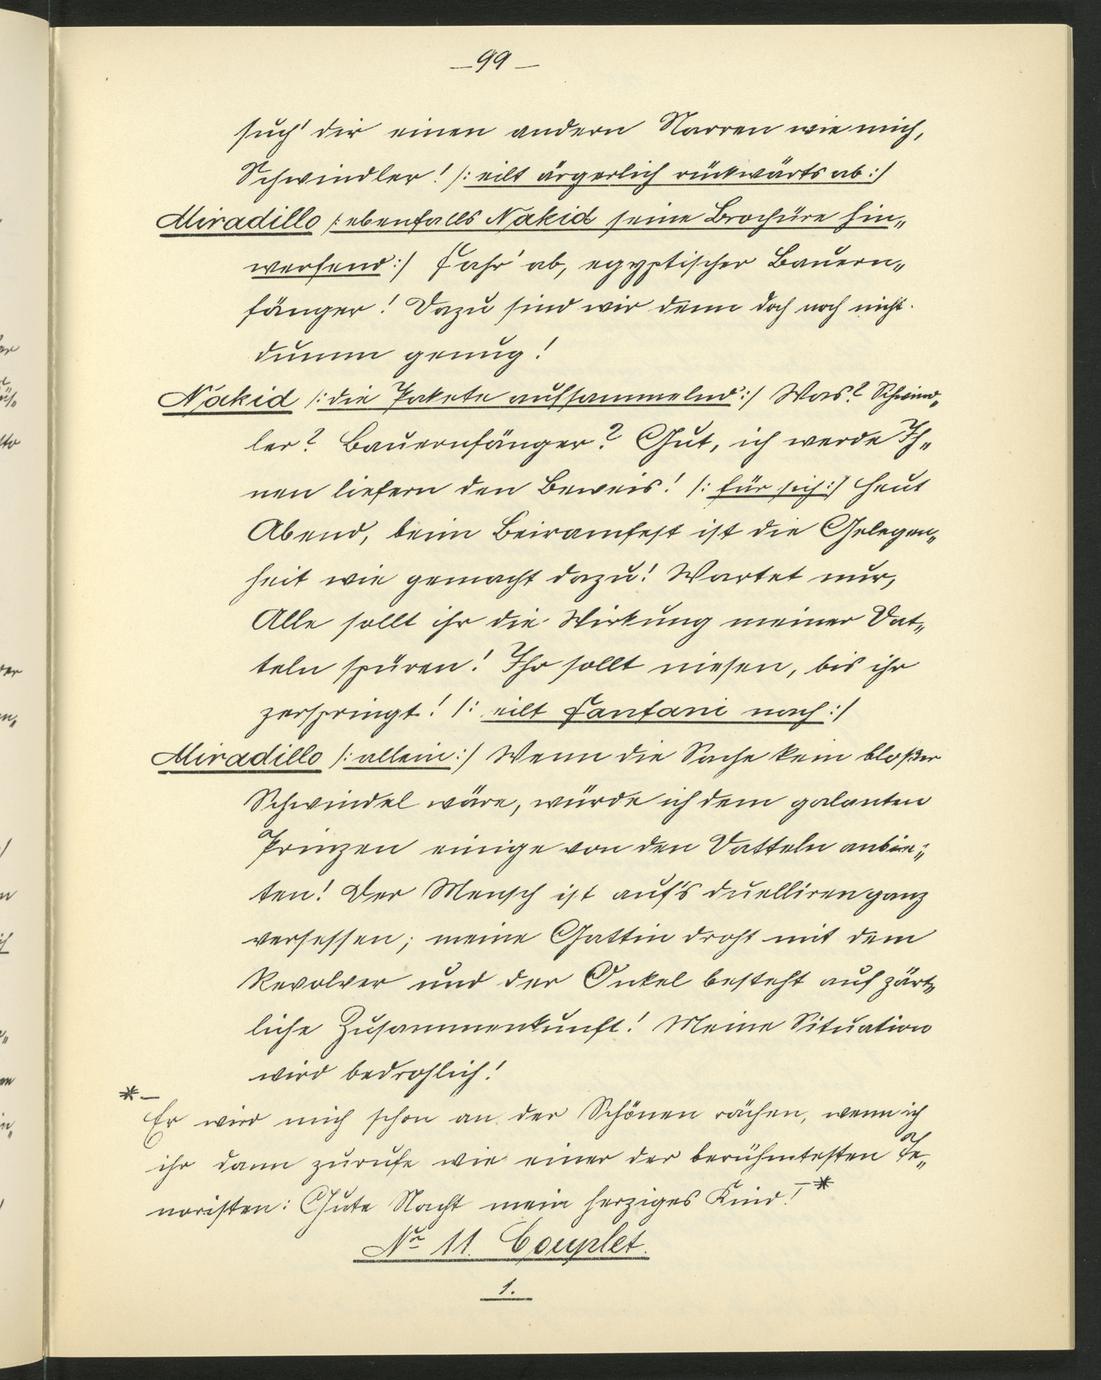 — 99 —
such' dir einen andern Narren wie mich,
Schwindler! /: eilt ärgerlich rückwärts ab :/
Miradillo /: ebenfalls Nakid seine Brochüre hin„
werfend :/ Fahr' ab, egyptischer Bauern„
fänger! Dazu sind wir denn doch noch nicht
dumm genug!
Nakid /: die Pakete aufsammelnd :/ Was? Schwind„
ler? Bauernfänger? Gut, ich werde Ih„
nen liefern den Beweis! /: für sich :/ Heut
Abend, beim Beiramfest ist die Gelegen„
heit wie gemacht dazu! Wartet nur,
Alle sollt ihr die Wirkung meiner Dat„
teln spüren! Ihr sollt niesen, bis ihr
zerspringt! /: eilt Fanfani nach :/
Miradillo /: allein :/ Wenn die Sache kein bloßer
Schwindel wäre, würde ich dem galanten
Prinzen einige von den Datteln anbie„
ten! Der Mensch ist auf's duelliren ganz
versessen; meine Gattin droht mit dem
Revolver und der Onkel besteht auf zärt„
liche Zusammenkunft! Meine Situation
wird bedrohlich!
*—
Er wird mich schon an der Schönen rächen, wenn ich
ihr dann zurufe wie einer der berühmtesten Te„
noristen: Gute Nacht mein herziges Kind! —*
No 11 Couplet.
1.